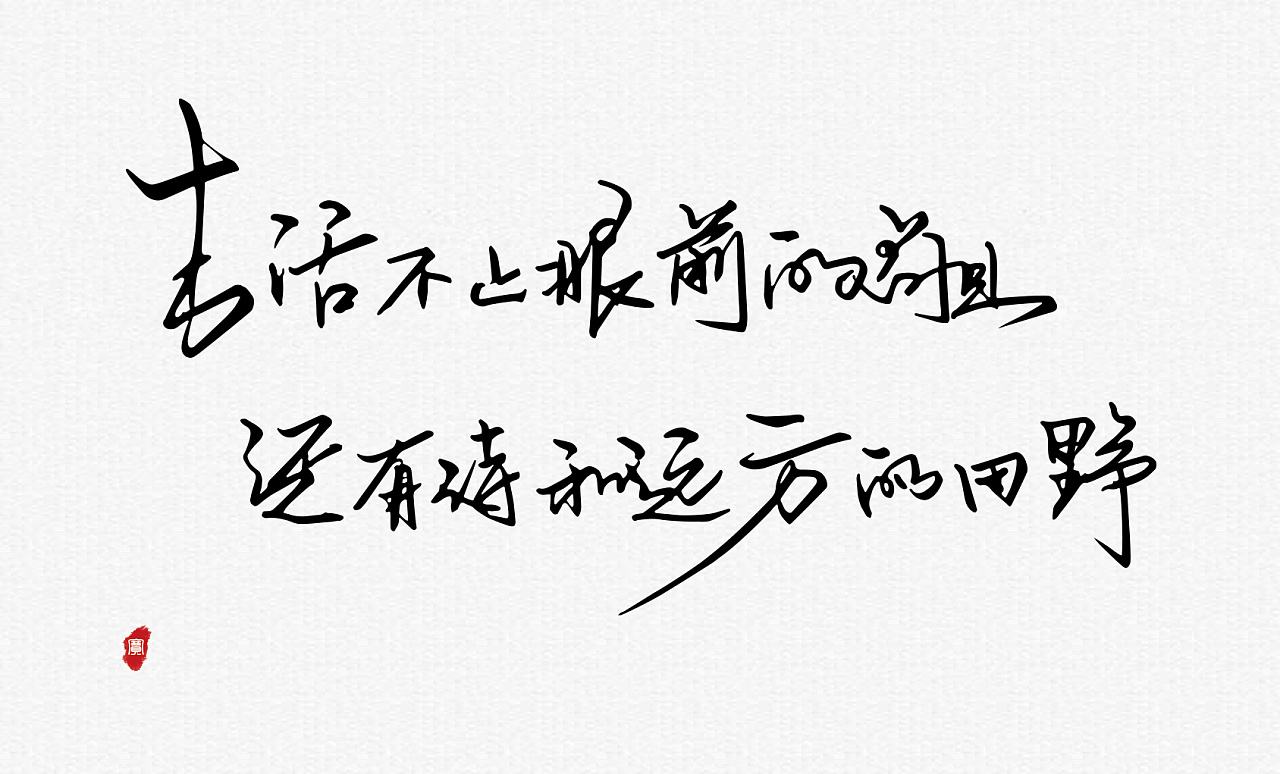 生活不止眼前的苟且
还有诗和远方的田野
寶